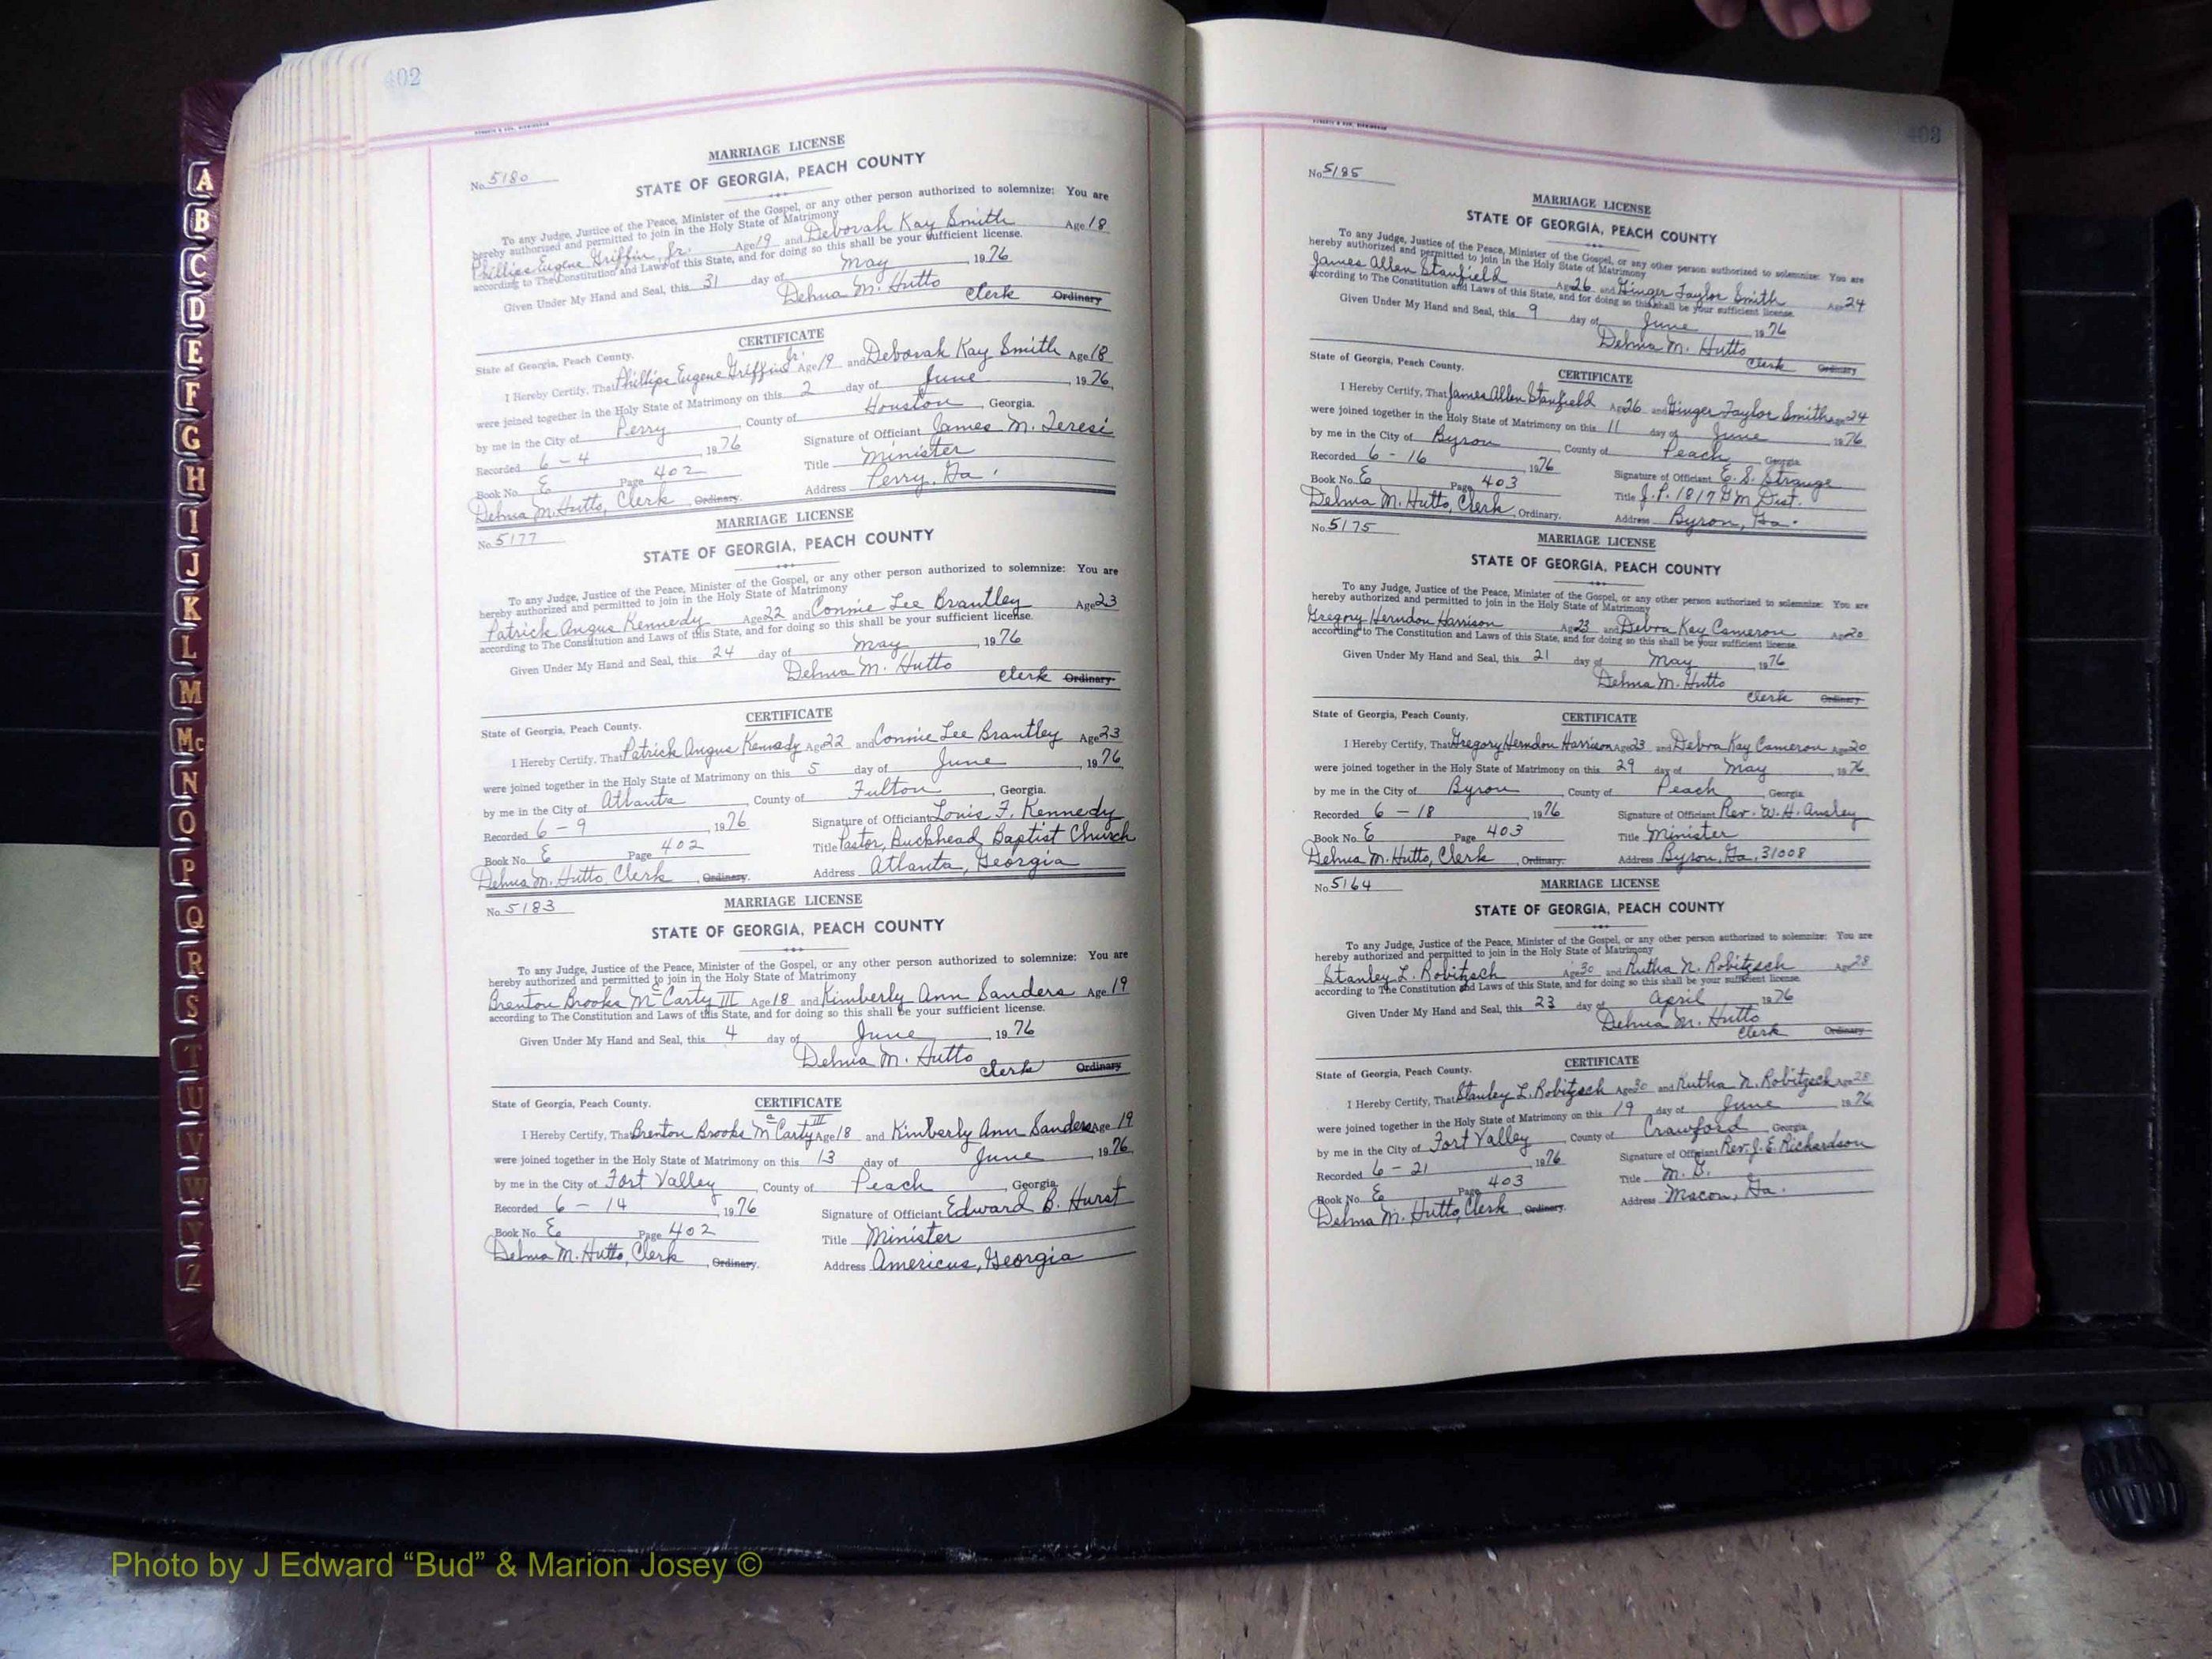 402
ROBERTS & SON, BIRMINGHAM
MARRIAGE LICENSE
No. 5180
STATE OF GEORGIA, PEACH COUNTY
To any Judge, Justice of the Peace, Minister of the Gospel, or any other person authorized to solemnize: You are
hereby authorized and permitted to join in the Holy State of Matrimony
Phillips Eugene Griffin, Jr. Age 19 and Deborah Kay Smith Age 18
according to The Constitution and Laws of this State, and for doing so this shall be your sufficient license.
Given Under My Hand and Seal, this 31 day of May 1976
Delma M. Hutto
Clerk Ordinary
CERTIFICATE
State of Georgia, Peach County.
I Hereby Certify, That Phillips Eugene Griffin Jr. Age 19 and Deborah Kay Smith Age 18
were joined together in the Holy State of Matrimony on this 2 day of June, 1976,
by me in the City of Perry, County of Houston, Georgia.
Recorded 6 - 4, 1976 Signature of Officiant James M. Teresi
Book No. E Page 402 Title Minister
Delma M. Hutto, Clerk, Ordinary. Address Perry, Ga.
MARRIAGE LICENSE
No. 5177
STATE OF GEORGIA, PEACH COUNTY
To any Judge, Justice of the Peace, Minister of the Gospel, or any other person authorized to solemnize: You are
hereby authorized and permitted to join in the Holy State of Matrimony
Patrick Angus Kennedy Age 22 and Connie Lee Brantley Age 23
according to The Constitution and Laws of this State, and for doing so this shall be your sufficient license.
Given Under My Hand and Seal, this 24 day of May, 1976
Delma M. Hutto
Clerk Ordinary
CERTIFICATE
State of Georgia, Peach County.
I Hereby Certify, That Patrick Angus Kennedy Age 22 and Connie Lee Brantley Age 23
were joined together in the Holy State of Matrimony on this 5 day of June, 1976,
by me in the City of Atlanta, County of Fulton, Georgia.
Recorded 6 - 9, 1976 Signature of Officiant Louis F. Kennedy
Book No. E Page 402 Title Pastor, Buckhead Baptist Church
Delma M. Hutto, Clerk, Ordinary. Address Atlanta, Georgia
MARRIAGE LICENSE
No. 5183
STATE OF GEORGIA, PEACH COUNTY
To any Judge, Justice of the Peace, Minister of the Gospel, or any other person authorized to solemnize: You are
hereby authorized and permitted to join in the Holy State of Matrimony
Brenton Brooks McCarty III Age 18 and Kimberly Ann Sanders Age 19
according to The Constitution and Laws of this State, and for doing so this shall be your sufficient license.
Given Under My Hand and Seal, this 4 day of June, 1976
Delma M. Hutto
Clerk Ordinary
CERTIFICATE
State of Georgia, Peach County.
I Hereby Certify, That Brenton Brooks McCarty III Age 18 and Kimberly Ann Sanders Age 19
were joined together in the Holy State of Matrimony on this 13 day of June, 1976,
by me in the City of Fort Valley, County of Peach, Georgia.
Recorded 6 - 14, 1976 Signature of Officiant Edward B. Hurst
Book No. E Page 402 Title Minister
Delma M. Hutto, Clerk, Ordinary. Address Americus, Georgia
403
ROBERTS & SON, BIRMINGHAM
No. 5185
MARRIAGE LICENSE
STATE OF GEORGIA, PEACH COUNTY
To any Judge, Justice of the Peace, Minister of the Gospel, or any other person authorized to solemnize: You are
hereby authorized and permitted to join in the Holy State of Matrimony
James Allen Stanfield Age 26 and Ginger Taylor Smith Age 24
according to The Constitution and Laws of this State, and for doing so this shall be your sufficient license.
Given Under My Hand and Seal, this 9 day of June, 1976
Delma M. Hutto
Clerk Ordinary
State of Georgia, Peach County.
CERTIFICATE
I Hereby Certify, That James Allen Stanfield Age 26 and Ginger Taylor Smith Age 24
were joined together in the Holy State of Matrimony on this 11 day of June, 1976,
by me in the City of Byron, County of Peach, Georgia.
Recorded 6 - 16, 1976 Signature of Officiant E. S. Strange
Book No. E Page 403 Title J.P. 1817 G M Dist.
Delma M. Hutto, Clerk, Ordinary. Address Byron, Ga.
No. 5175
MARRIAGE LICENSE
STATE OF GEORGIA, PEACH COUNTY
To any Judge, Justice of the Peace, Minister of the Gospel, or any other person authorized to solemnize: You are
hereby authorized and permitted to join in the Holy State of Matrimony
Gregory Herndon Harrison Age 23 and Debra Kay Cameron Age 20
according to The Constitution and Laws of this State, and for doing so this shall be your sufficient license.
Given Under My Hand and Seal, this 21 day of May, 1976
Delma M. Hutto
Clerk Ordinary
State of Georgia, Peach County. CERTIFICATE
I Hereby Certify, That Gregory Herndon Harrison Age 23 and Debra Kay Cameron Age 20
were joined together in the Holy State of Matrimony on this 29 day of May, 1976
by me in the City of Byron, County of Peach, Georgia.
Recorded 6 - 18, 1976 Signature of Officiant Rev. W. H. Ansley
Book No. E Page 403 Title Minister
Delma M. Hutto, Clerk, Ordinary. Address Byron, Ga. 31008
No. 5164
MARRIAGE LICENSE
STATE OF GEORGIA, PEACH COUNTY
To any Judge, Justice of the Peace, Minister of the Gospel, or any other person authorized to solemnize: You are
hereby authorized and permitted to join in the Holy State of Matrimony
Stanley L. Robitzsch Age 30 and Rutha N. Robitzsch Age 28
according to The Constitution and Laws of this State, and for doing so this shall be your sufficient license.
Given Under My Hand and Seal, this 23 day of April, 1976
Delma M. Hutto
Clerk Ordinary
CERTIFICATE
State of Georgia, Peach County.
I Hereby Certify, That Stanley L. Robitzsch Age 30 and Rutha N. Robitzsch Age 28
were joined together in the Holy State of Matrimony on this 19 day of June, 1976
by me in the City of Fort Valley, County of Crawford, Georgia
Recorded 6 - 21, 1976 Signature of Officiant Rev. J. E. Richardson
Book No. E Page 403 Title
Delma M. Hutto, Clerk, Ordinary. Address Macon, Ga.
A
B
C
D
E
F
G
H
I
J
K
L
M
Mc
N
O
P
Q
R
S
T
U
V
W
Y
Z
Photo by J Edward “Bud” & Marion Josey ©